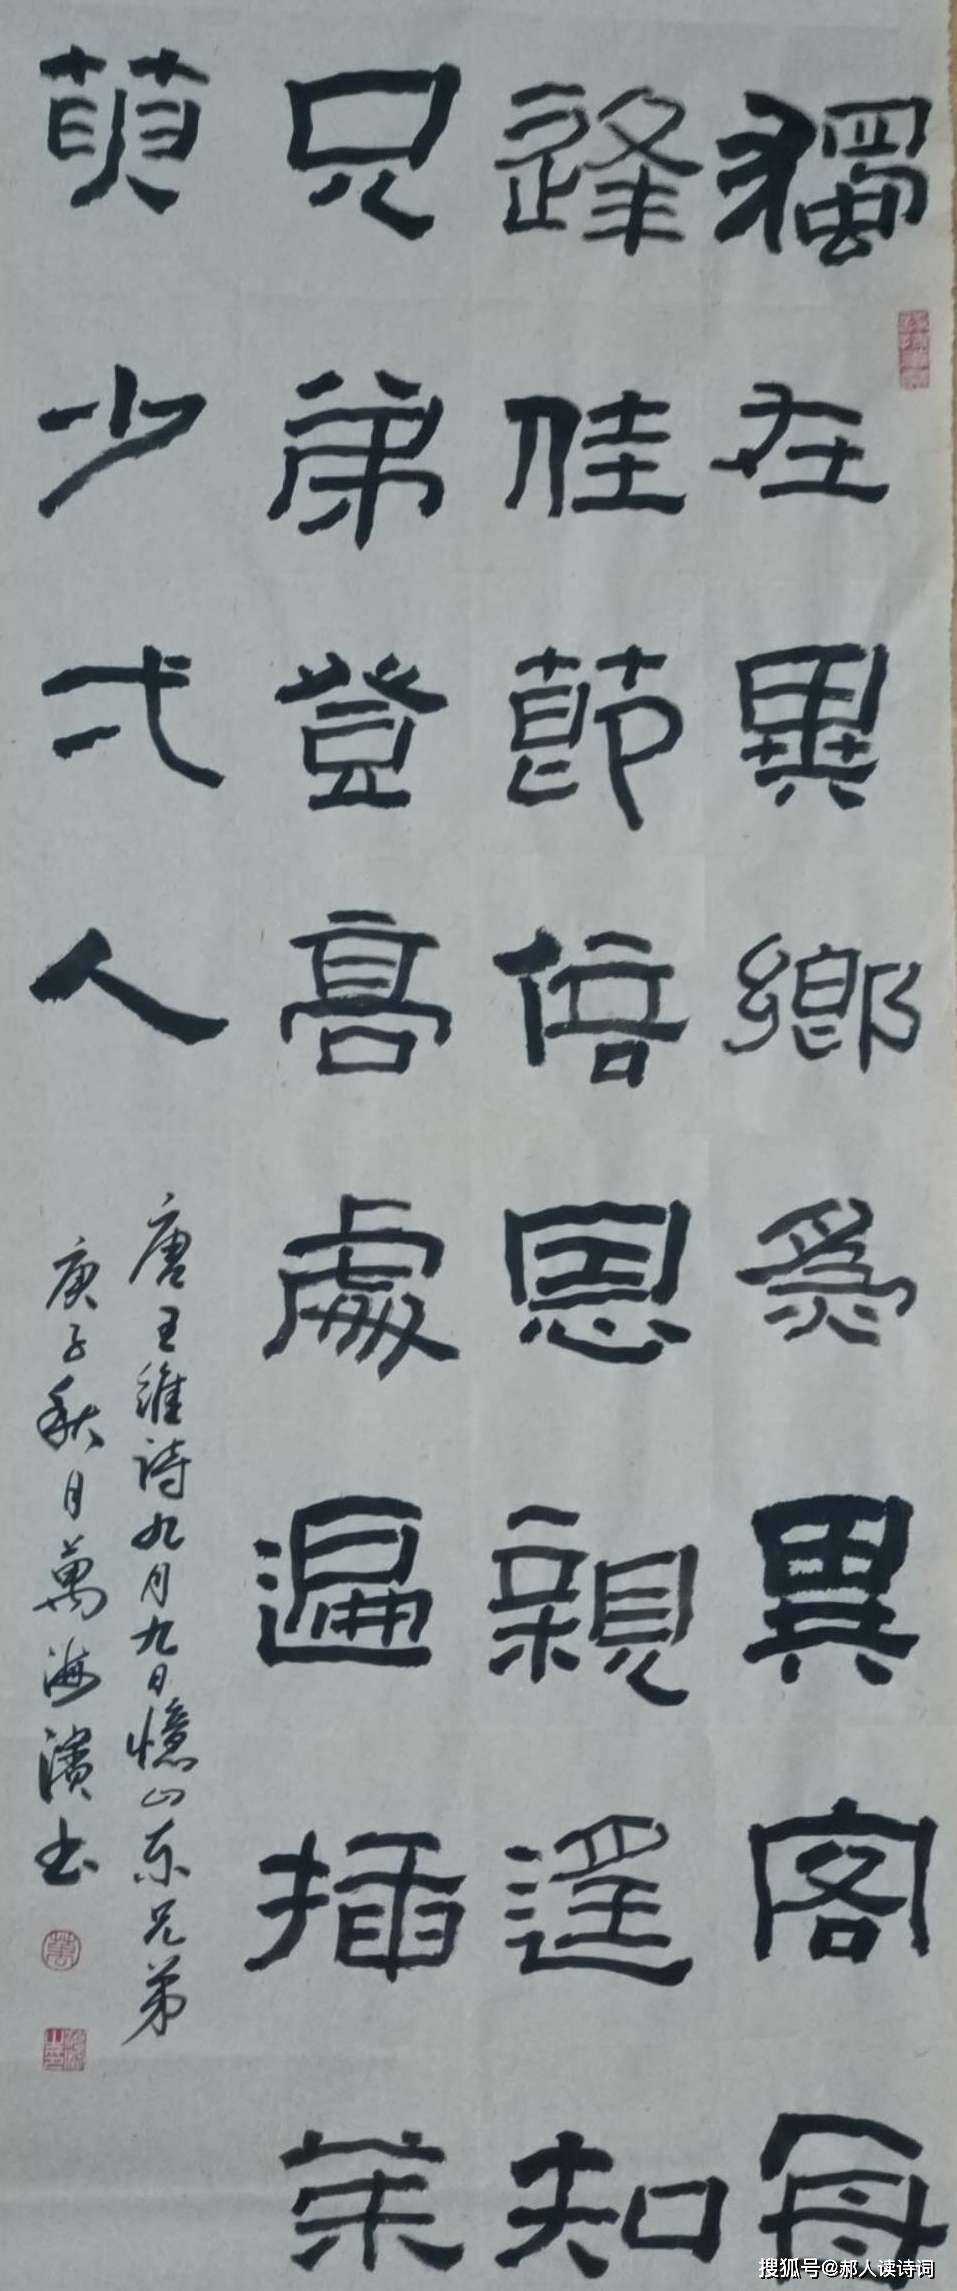 獨在異鄉爲異客每
逢佳節倍恩親遥知
兄弟登高處遍插茱
萸少弌人
唐王維诗九月九日憶山东兄弟
庚子秋月萬海濱书
搜狐号@郝人读诗词